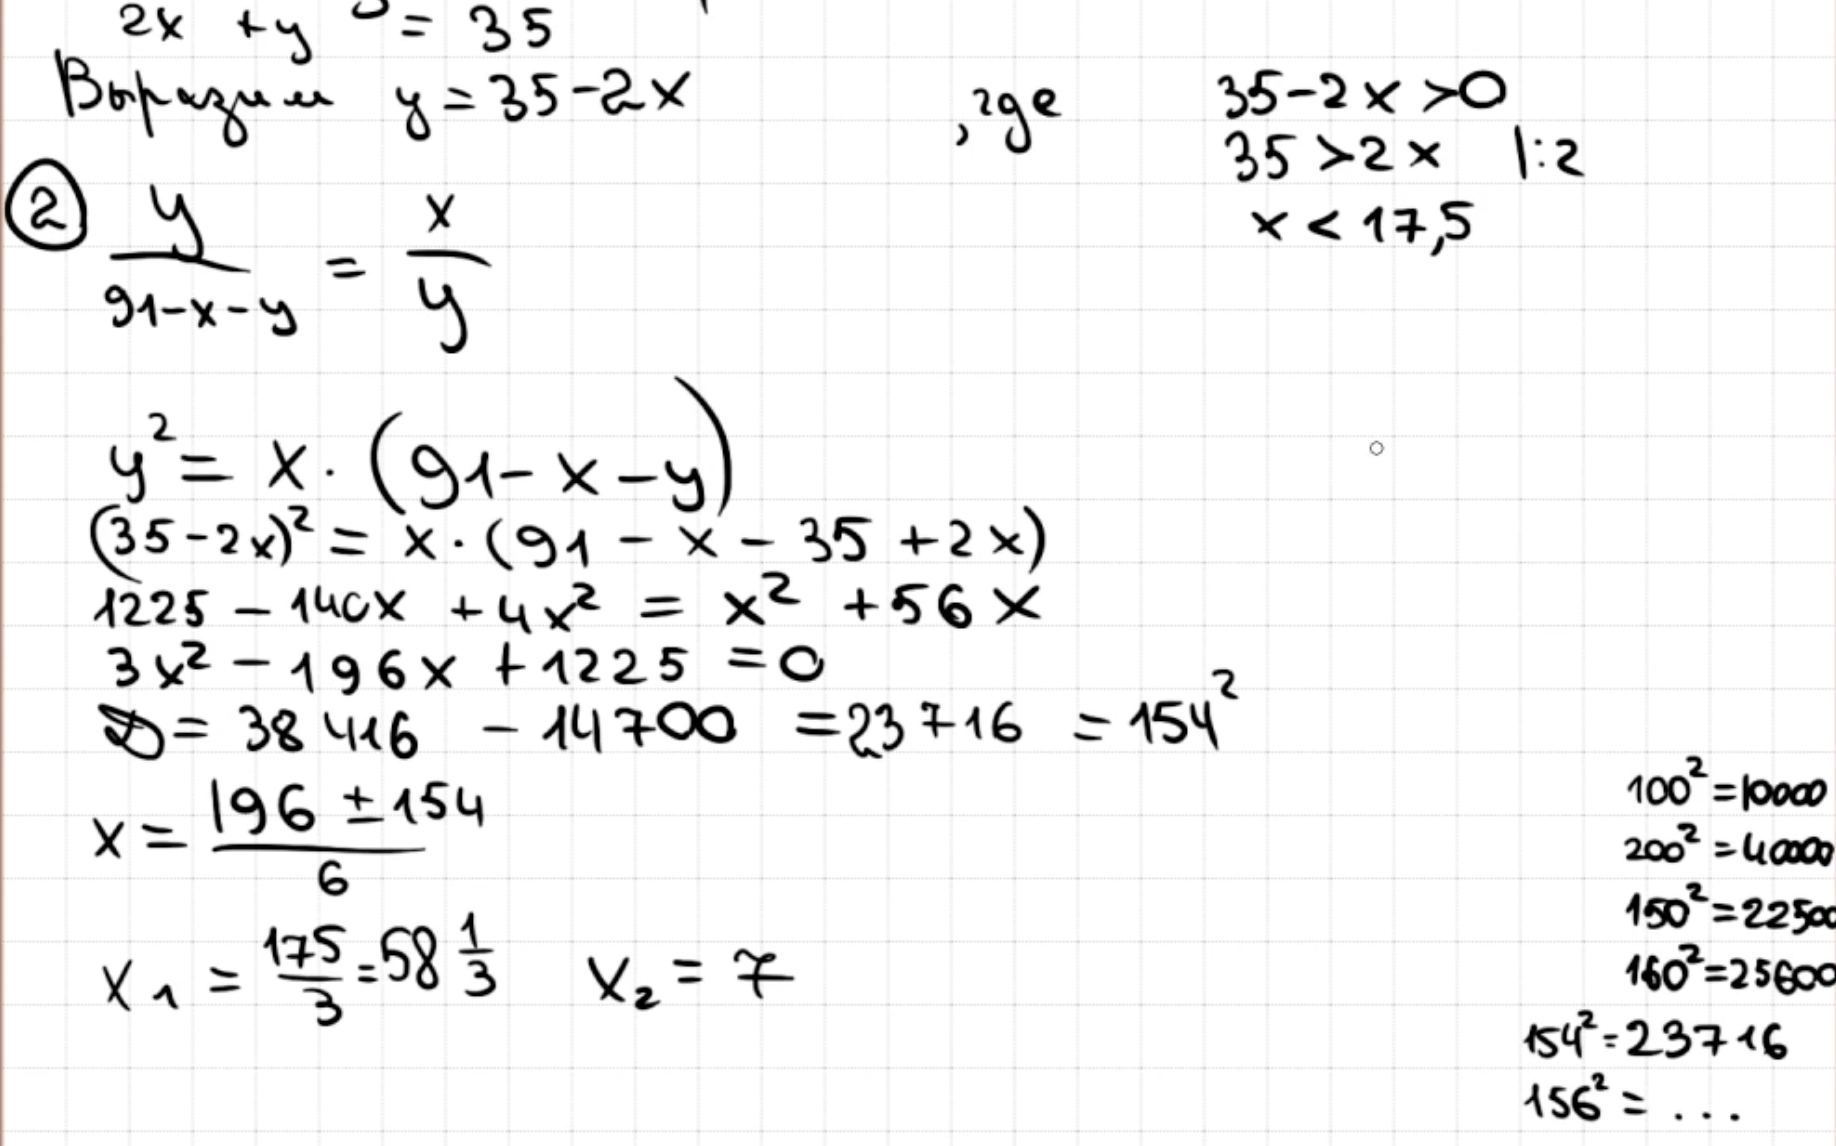 2x + y = 35
Выразим y = 35 - 2x , где 35 - 2x > 0
35 > 2x |:2
x < 17,5
② y/(91-x-y) = x/y
y² = x · (91 - x - y)
(35-2x)² = x · (91 - x - 35 + 2x)
1225 - 140x + 4x² = x² + 56x
3x² - 196x + 1225 = 0
D = 38416 - 14700 = 23716 = 154²
x = (196 ± 154)/6
x₁ = 175/3 = 58 1/3 x₂ = 7
100² = 10000
200² = 40000
150² = 22500
160² = 25600
154² = 23716
156² = ...